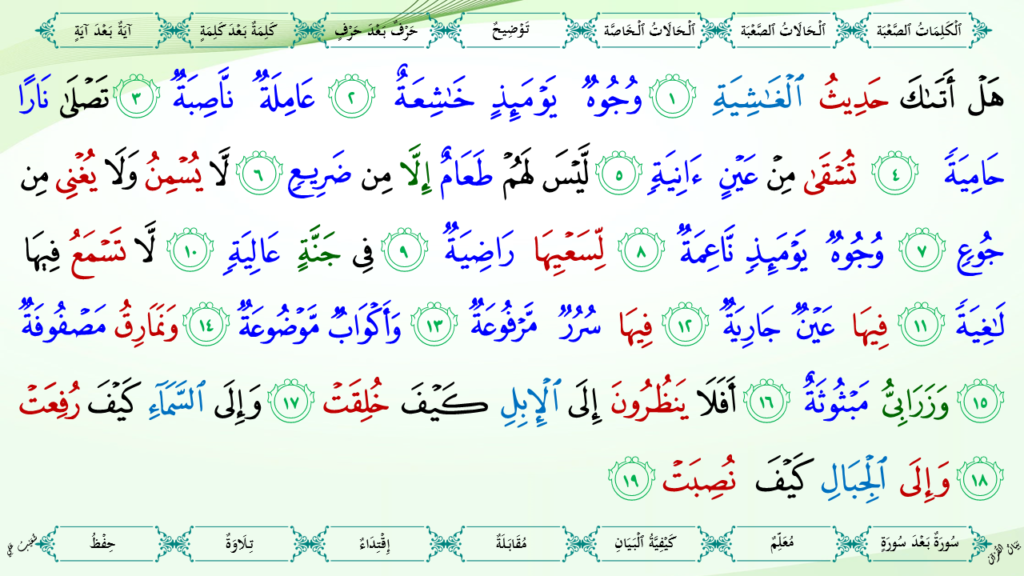 اَلْكَلِمَاتُ الصَّعْبَة اَلْحَالَاتُ الصَّعْبَة اَلْحَالَاتُ الْخَاصَّة تَوْضِيحٌ حَرْفٌ بَعْدَ حَرْفٍ كَلِمَةٌ بَعْدَ كَلِمَةٍ آيَةٌ بَعْدَ آيَةٍ
هَلْ أَتَىٰكَ حَدِيثُ ٱلْغَـٰشِيَةِ ١ وُجُوهٌ يَوْمَئِذٍ خَـٰشِعَةٌ ٢ عَامِلَةٌ نَّاصِبَةٌ ٣ تَصْلَىٰ نَارًا
حَامِيَةً ٤ تُسْقَىٰ مِنْ عَيْنٍ ءَانِيَةٍ ٥ لَّيْسَ لَهُمْ طَعَامٌ إِلَّا مِن ضَرِيعٍ ٦ لَّا يُسْمِنُ وَلَا يُغْنِى مِن
جُوعٍ ٧ وُجُوهٌ يَوْمَئِذٍ نَّاعِمَةٌ ٨ لِّسَعْيِهَا رَاضِيَةٌ ٩ فِى جَنَّةٍ عَالِيَةٍ ١٠ لَّا تَسْمَعُ فِيهَا
لَـٰغِيَةً ١١ فِيهَا عَيْنٌ جَارِيَةٌ ١٢ فِيهَا سُرُرٌ مَّرْفُوعَةٌ ١٣ وَأَكْوَابٌ مَّوْضُوعَةٌ ١٤ وَنَمَارِقُ مَصْفُوفَةٌ
١٥ وَزَرَابِىُّ مَبْثُوثَةٌ ١٦ أَفَلَا يَنظُرُونَ إِلَى ٱلْإِبِلِ كَيْفَ خُلِقَتْ ١٧ وَإِلَى ٱلسَّمَآءِ كَيْفَ رُفِعَتْ
١٨ وَإِلَى ٱلْجِبَالِ كَيْفَ نُصِبَتْ ١٩
سُورَةٌ بَعْدَ سُورَةٍ مُعَلِّمٌ كَيْفِيَّةُ الْبَيَانِ مُقَابَلَةٌ إِقْتِدَاءٌ تِلَاوَةٌ حِفْظٌ